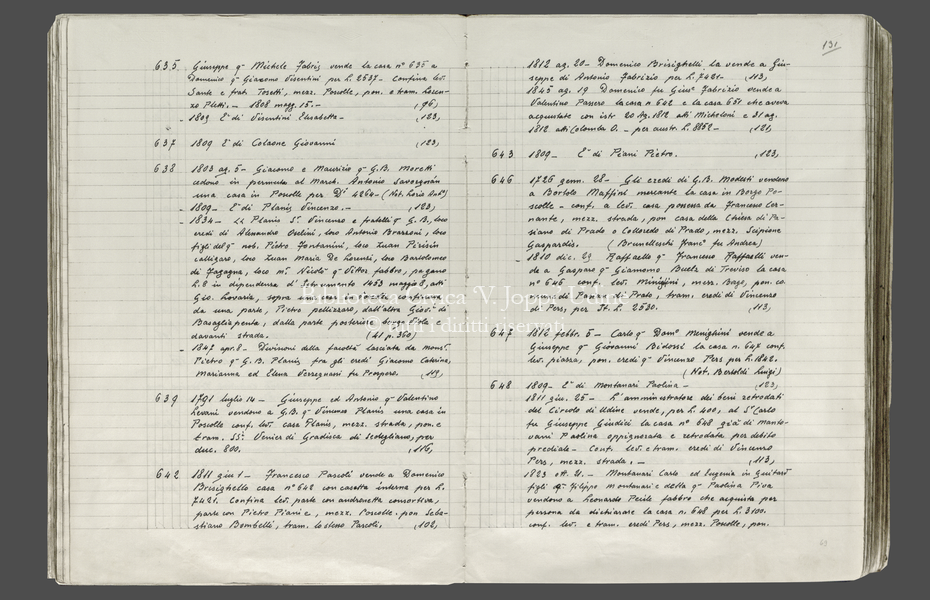 635 Giuseppe qm Michele Fabris vende la casa n° 635 a
Domenico qm Giacomo Visentini per L. 2537 - Confina lev.
Sante e frat. Tosetti, mezz. Poscolle, pon. e tram. Loren-
zo Pletti. - 1808 magg. 15. - (96)
- 1809 Ea di Visentini Elisabetta - (123)
637 1809 Ea di Colaone Giovanni (123)
638 1803 ag. 5 - Giacomo e Maurizio qm G.B. Moretti
cedono in permuta al March. Antonio Savorgnan
una casa in Poscolle per Di 4264 - (Not. Antº)
- 1809 - Ea di Planis Vincenzo. - (123)
- 1834 - Li Planis Sr. Vincenzo e fratelli qm G.B., loco
eredi di Alessandro Orelini, loco Antonio Brazzoni, loco
figli del qm nob. Pietro Fontanini, loco Zuan Pirisin
calligaro, loco Zuan Maria De Lorenzi, loco Bartolomeo
di Fagagna, loco mº Nicolò qm Vittor fabbro, pagano
L. 8 in dipendenza d'Istrumento 1453 maggio 8, atti
Gio. Lovaria, sopra casa
da una parte, Pietro pellizzaro, dall'altra Giov. di
Basagliapenta, dalla parte posteriore borgo d'Isola e
davanti strada. (41 p. 360)
- 1847 apr. 8 - Divisioni della facoltà lasciata da monsr
Pietro qm G.B. Planis fra gli eredi Giacomo Caterina,
Marianna ed Elena Verzegnassi fu Prospero. (119)
639 1791 luglio 14 - Giuseppe ed Antonio qm Valentino
Levani vendono a G.B. qm Vincenzo Planis una casa in
Poscolle conf. lev. casa Planis, mezz. strada, pon. e
tram. SSi Venier di Gradisca di Sedegliano, per
duc. 800. (116)
642 1811 giu. 1 - Francesco Pascoli vende a Domenico
Brisighello casa n° 642 con casetta interna per L.
7421. Confina lev. parte con andronetta consortiva,
parte con Pietro Piani e, mezz. Poscolle, pon. Seba-
stiano Bombelli, tram. lo stesso Pascoli. (102)
131
1812 ag. 20 - Domenico Brisighelli la vende a Giu-
seppe di Antonio Fabrizio per L. 7421 - (113)
1845 ag. 19 Domenico fu Giusº Fabrizio vende a
Valentino Passero la casa n 642 e la casa 651 che aveva
acquistate con istr. 20 Ag. 1812 atti Micheloni e 31 ag.
1812 atti Colomba O. - per austr. L. 8852 - (121)
643 1809 - Ea di Piani Pietro. (123)
646 1726 genn. 28 - Gli eredi di G.B. Modesti vendono
a Bortolo Maffini mercante la casa in Borgo Po-
scolle - conf. a lev. casa possessa da Francesco Cer-
nante, mezz. strada, pon casa della Chiesa di Pa-
siano di Prado o Colloredo di Prado, mezz. Scipione
Gaspardis. (Brunelleschi Francº fu Andrea)
- 1810 dic. 29 Raffaello qm Francesco Raffaelli ven-
de a Gasparo qm Giamomo Buela di Treviso la casa
n° 646 conf. lev. Minigini, mezz. Bage, pon. ca-
sa Pasian di Prato, tram. eredi di Vincenzo
Pers, per It. L. 2530. (113)
647 1816 febbr. 5 - Carlo qm Domº Menighini vende a
Giuseppe qm Giovanni Bidossi la casa n. 647 conf.
lev. piazza, pon. eredi qm Vincenzo Pers per L. 1842.
(Not. Bertoldi Luigi)
648 1809 - Ea di Montanari Paolina - (123)
1811 giu. 25 - L'amministratore dei beni retrodati
del Circolo di Udine vende, per L. 400, al Sr Carlo
fu Giuseppe Giudici la casa n° 648 già di Manto-
vani Paolina oppignorata e retrodata per debito
prediale - Conf. lev. e tram. eredi di Vincenzo
Pers, mezz. strada. - (113)
1823 ott. 21 - Montanari Carlo ed Eugenia in
figli di Filippo Montanari e della qm Paolina Piva
vendono a Leonardo Peçile fabbro che acquista per
persona da dichiarare la casa n. 648 per L. 3100.
conf. lev. e tram. eredi Pers, mezz. Poscolle, pon.
Biblioteca Civica 'V. Joppi' Udine
© tutti i diritti riservati